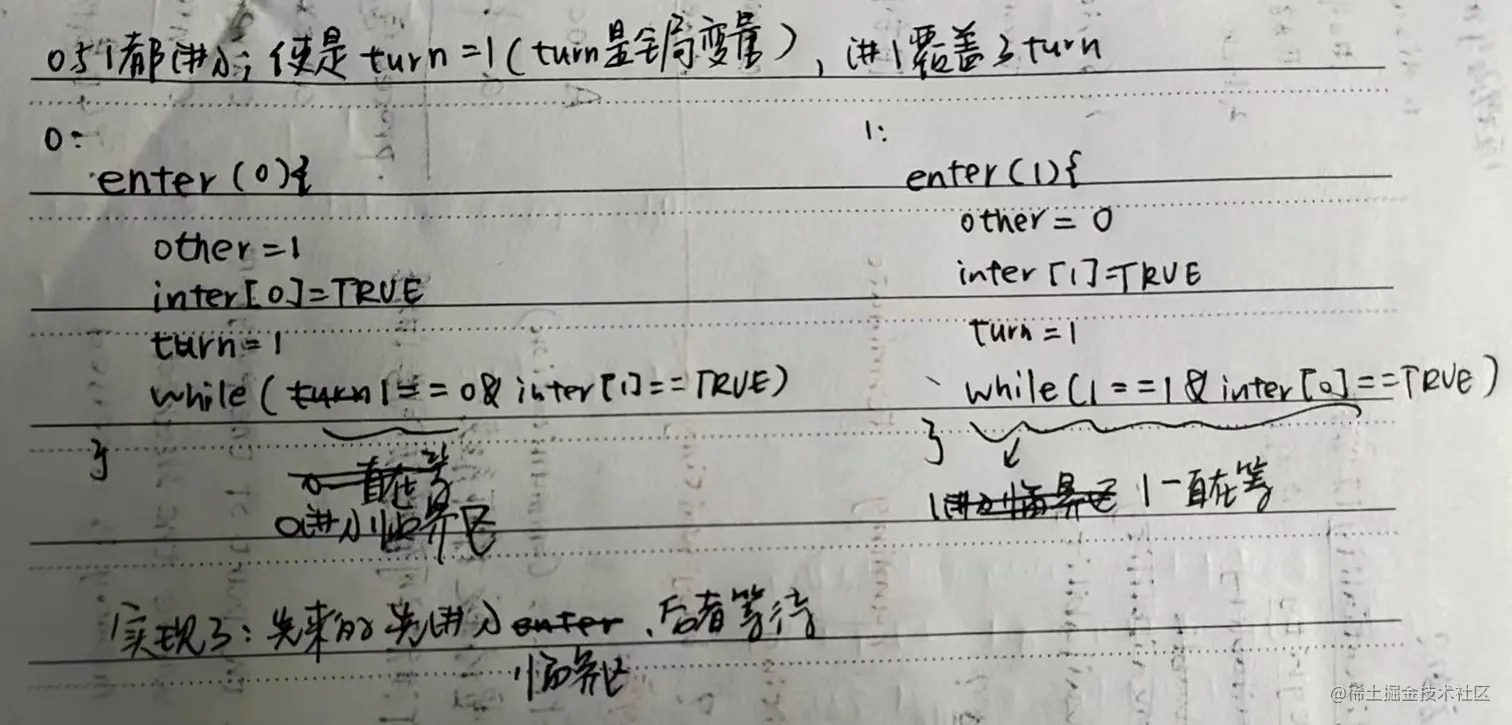 0与1都进入; 使是turn=1(turn是全局变量), 进1覆盖了turn
0:
enter(0){
other=1
inter[0]=TRUE
turn=1
while(turn 1==0&inter[1]==TRUE)
}
0一直在等
0进入临界区
1:
enter(1){
other=0
inter[1]=TRUE
turn=1
while(1==1&inter[0]==TRUE)
}
1进入临界区 1一直在等
实现了:先来的先进入enter、后者等待
临界区
@稀土掘金技术社区